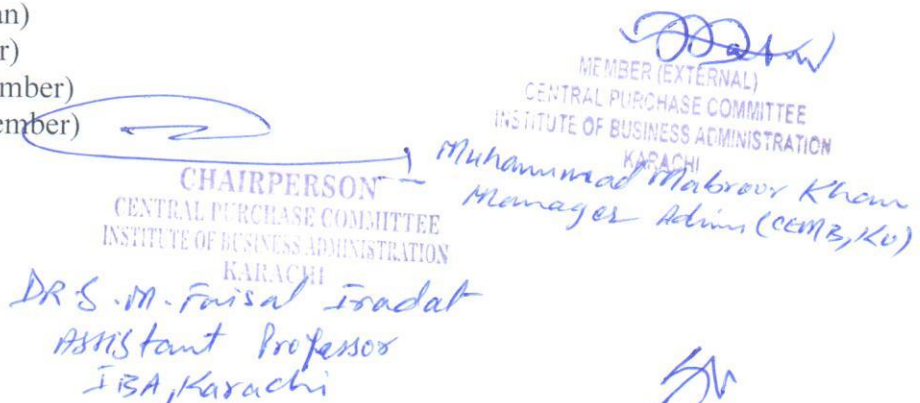 an)
r)
mber)
ember)
MEMBER (EXTERNAL)
CENTRAL PURCHASE COMMITTEE
INSTITUTE OF BUSINESS ADMINISTRATION
KARACHI
Muhammad Mabroor Khan
Manager Admin (CEMB, KU)
CHAIRPERSON
CENTRAL PURCHASE COMMITTEE
INSTITUTE OF BUSINESS ADMINISTRATION
KARACHI
DR S. M. Faisal Iradat
Assistant Professor
IBA, Karachi